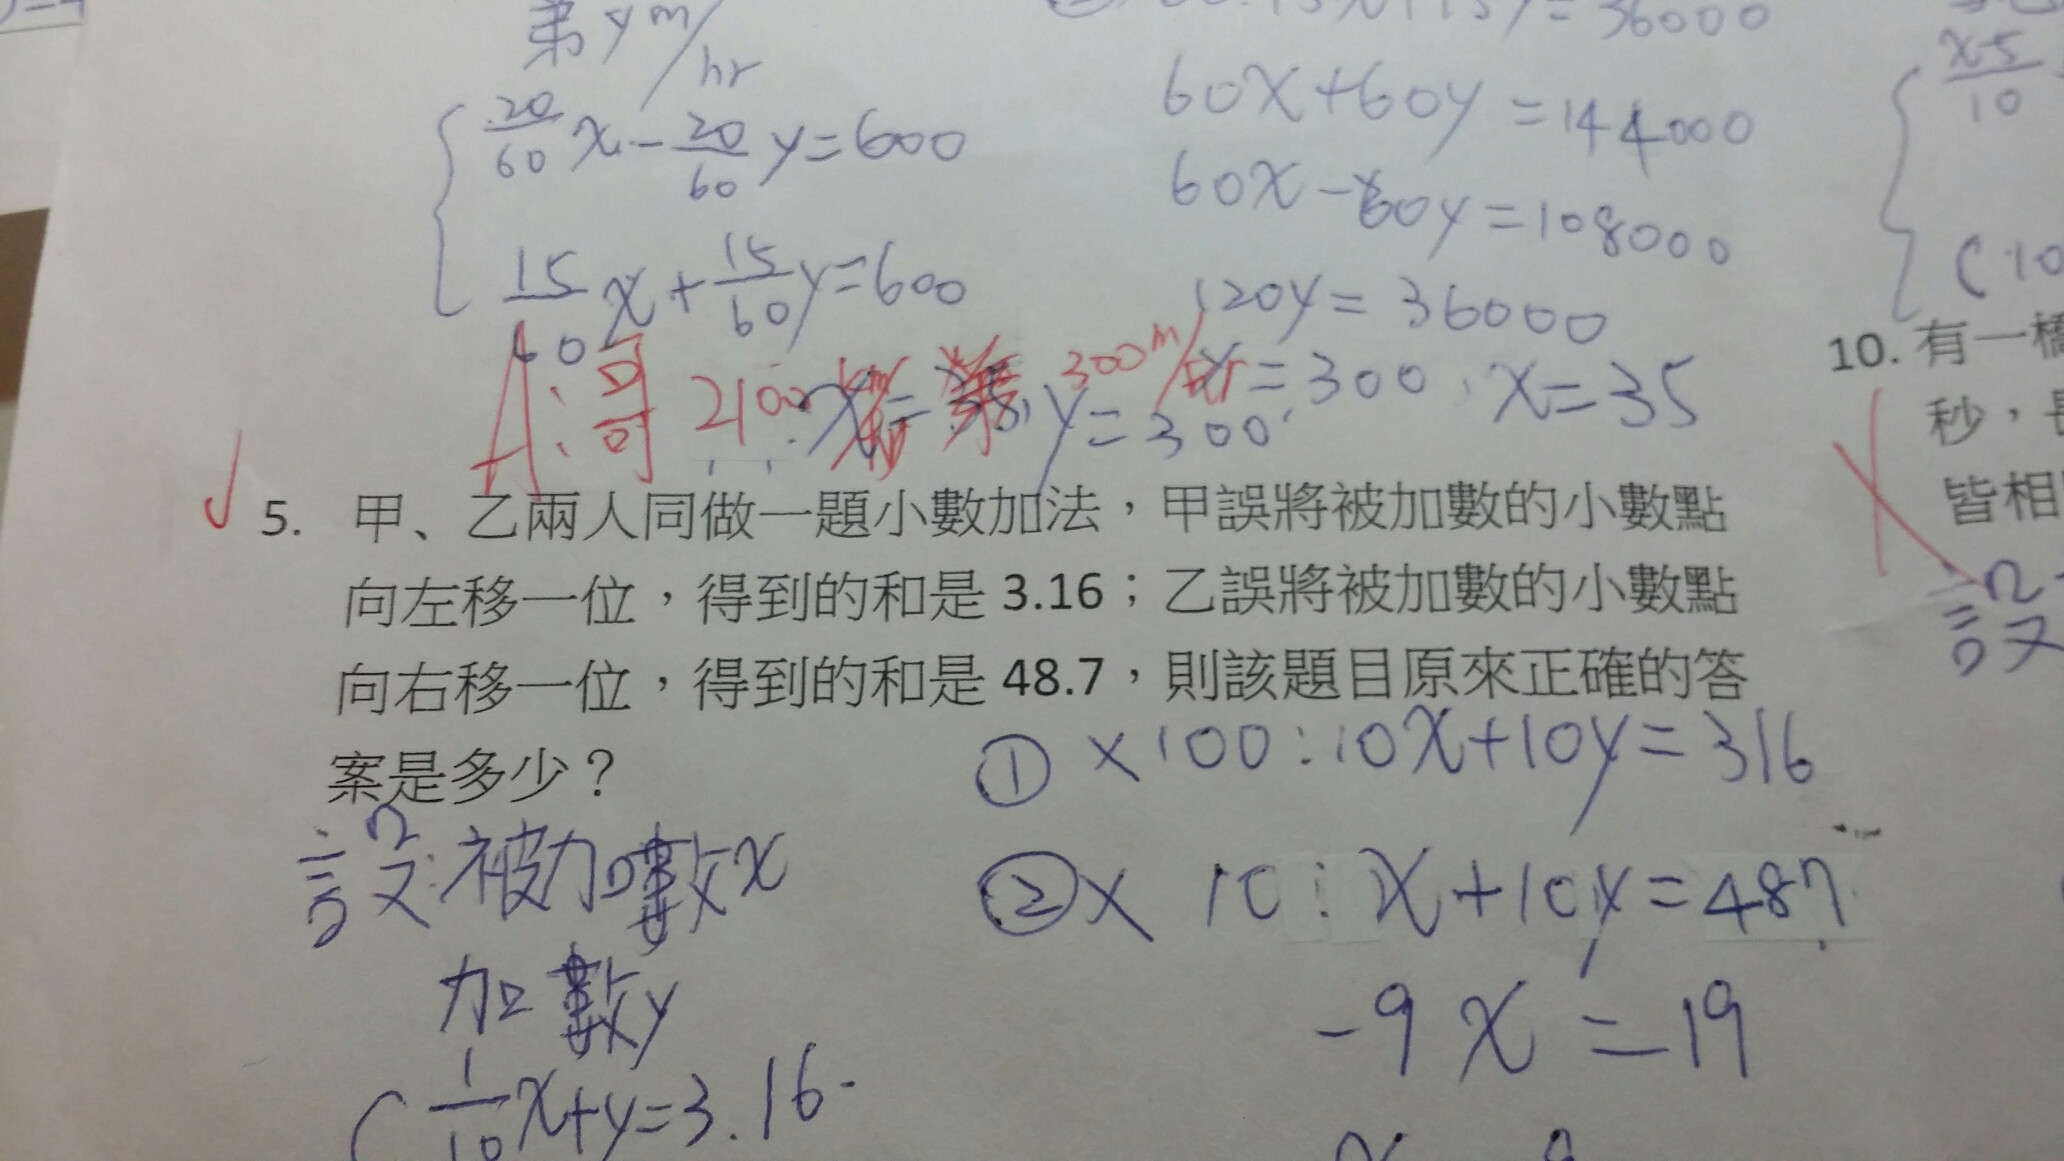 弟 y m/hr
20/60 x - 20/60 y = 600
15/60 x + 15/60 y = 600
= 36000
60x + 60y = 144000
60x - 60y = 108000
120y = 36000
y = 300, x = 35
A: 哥 2100
300 m/hr
y = 300
5. 甲、乙兩人同做一題小數加法，甲誤將被加數的小數點
向左移一位，得到的和是 3.16；乙誤將被加數的小數點
向右移一位，得到的和是 48.7，則該題目原來正確的答
案是多少？
設:被加數x
加數y
1/10 x+y=3.16
① ×100:10x+10y=316
② × 10: x+10y=487
-9x=19
x-5/10
(10
10. 有一橋
秒，長
皆相
設